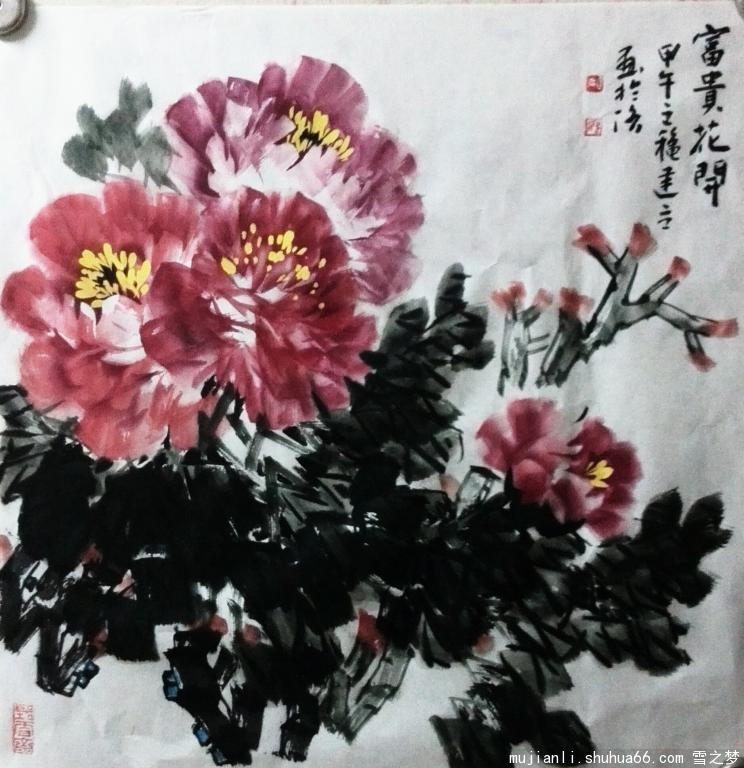 富貴花開
甲午之穐建立
画於洛
mujianli.shuhua66.com 雪之梦